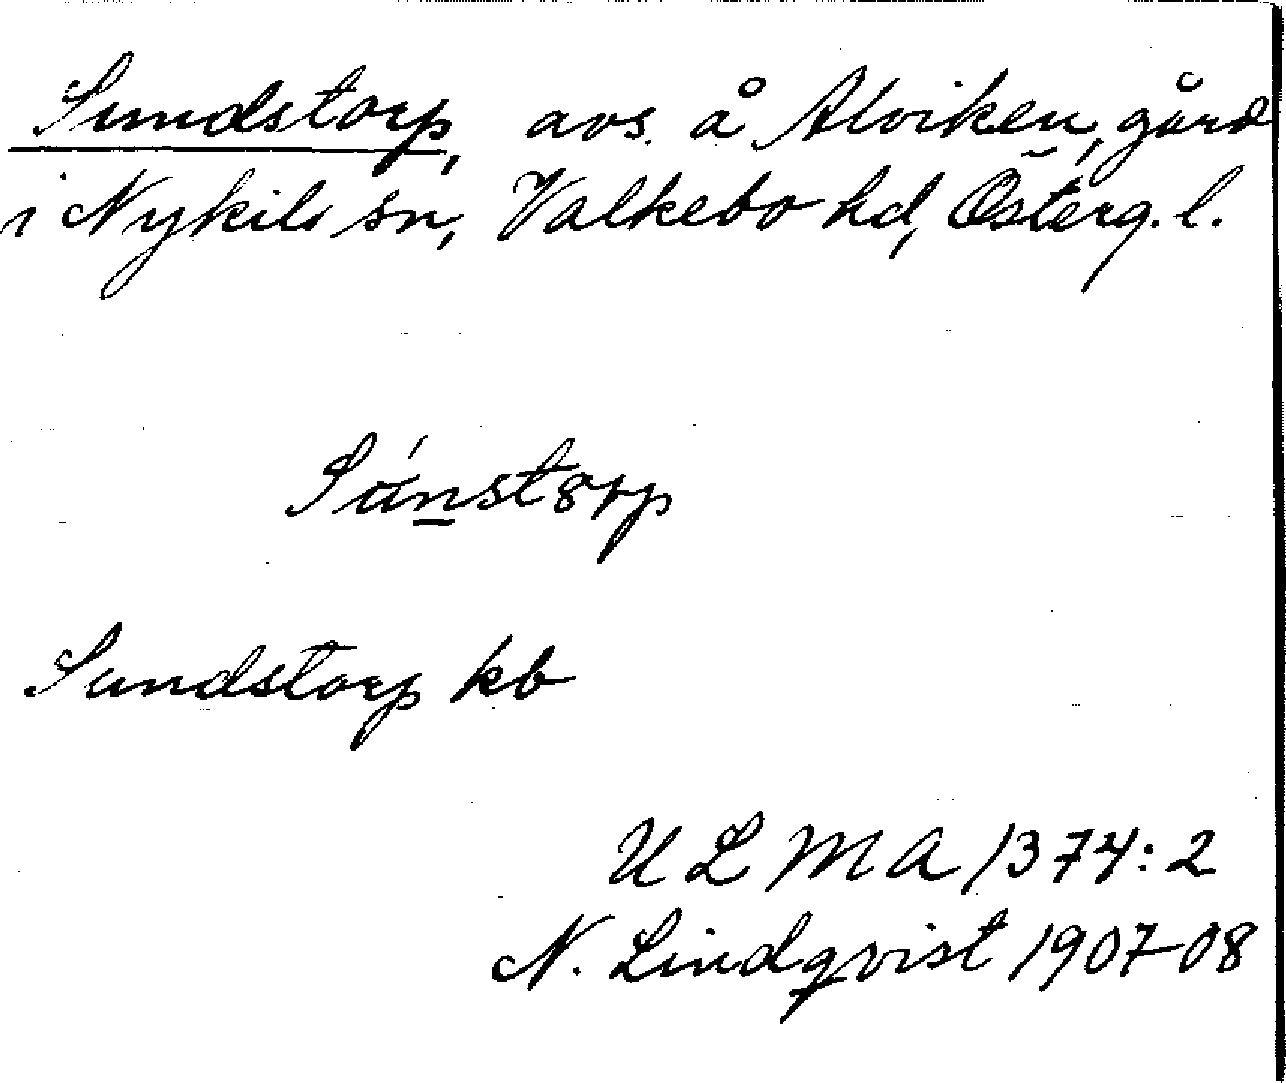 Sundstorp, avs. å Alviken, gård
i Nykils sn, Valkebo hd, Österg. l.
Sánstɜrp
Sundstorp kb
ULMA 1374:2
N. Lindqvist 1907-08